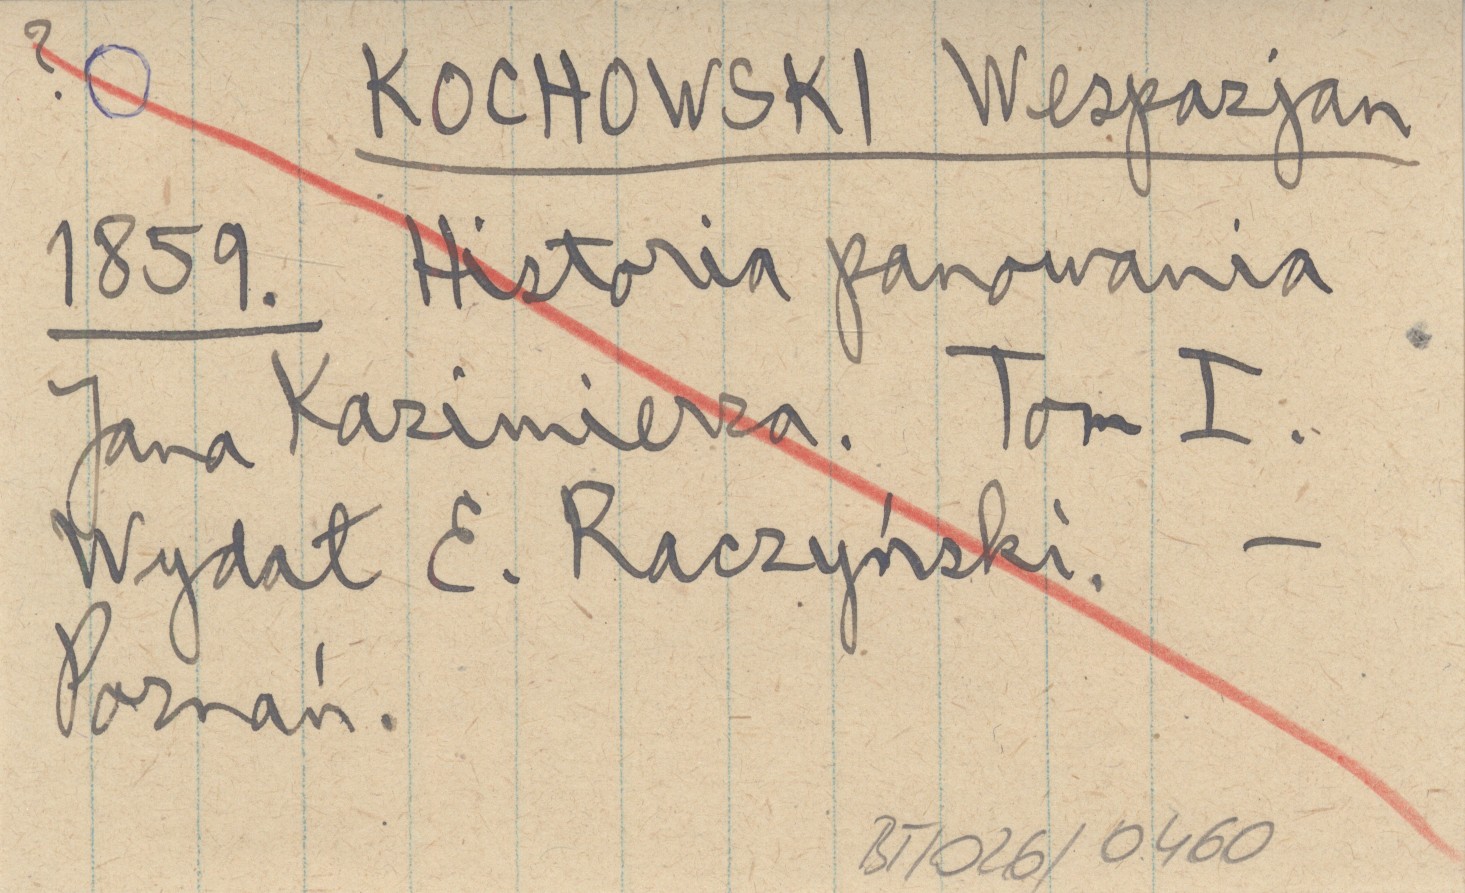 ? KOCHOWSKI Wespazjan
1859. Historia panowania
Jana Kazimierza. Tom I.
Wydał E. Raczyński. —
Poznań.
BT/026/0460